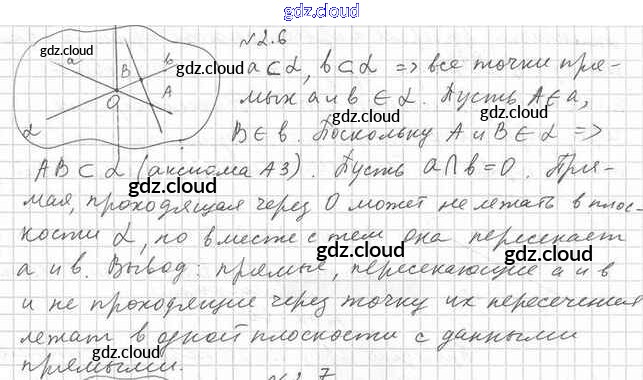 gdz.cloud
№2.6
gdz.cloud
a
b
B
gdz.cloud
A
O
α
gdz.cloud
a⊂α, b⊂α => все точки пря-
gdz.cloud
мых a и b ∈ α. Пусть A∈a,
B∈b. Поскольку A и B∈α =>
gdz.cloud
AB⊂α (аксиома А3). Пусть a∩b=O. Пря-
gdz.cloud
мая, проходящая через O может не лежать в плос-
gdz.cloud
кости α, но вместе с тем она пересекает
gdz.cloud
a и b. Вывод: прямые, пересекающие a и b
gdz.cloud
и не проходящие через точку их пересечения
лежат в одной плоскости с данными
gdz.cloud
прямыми.
№2.7